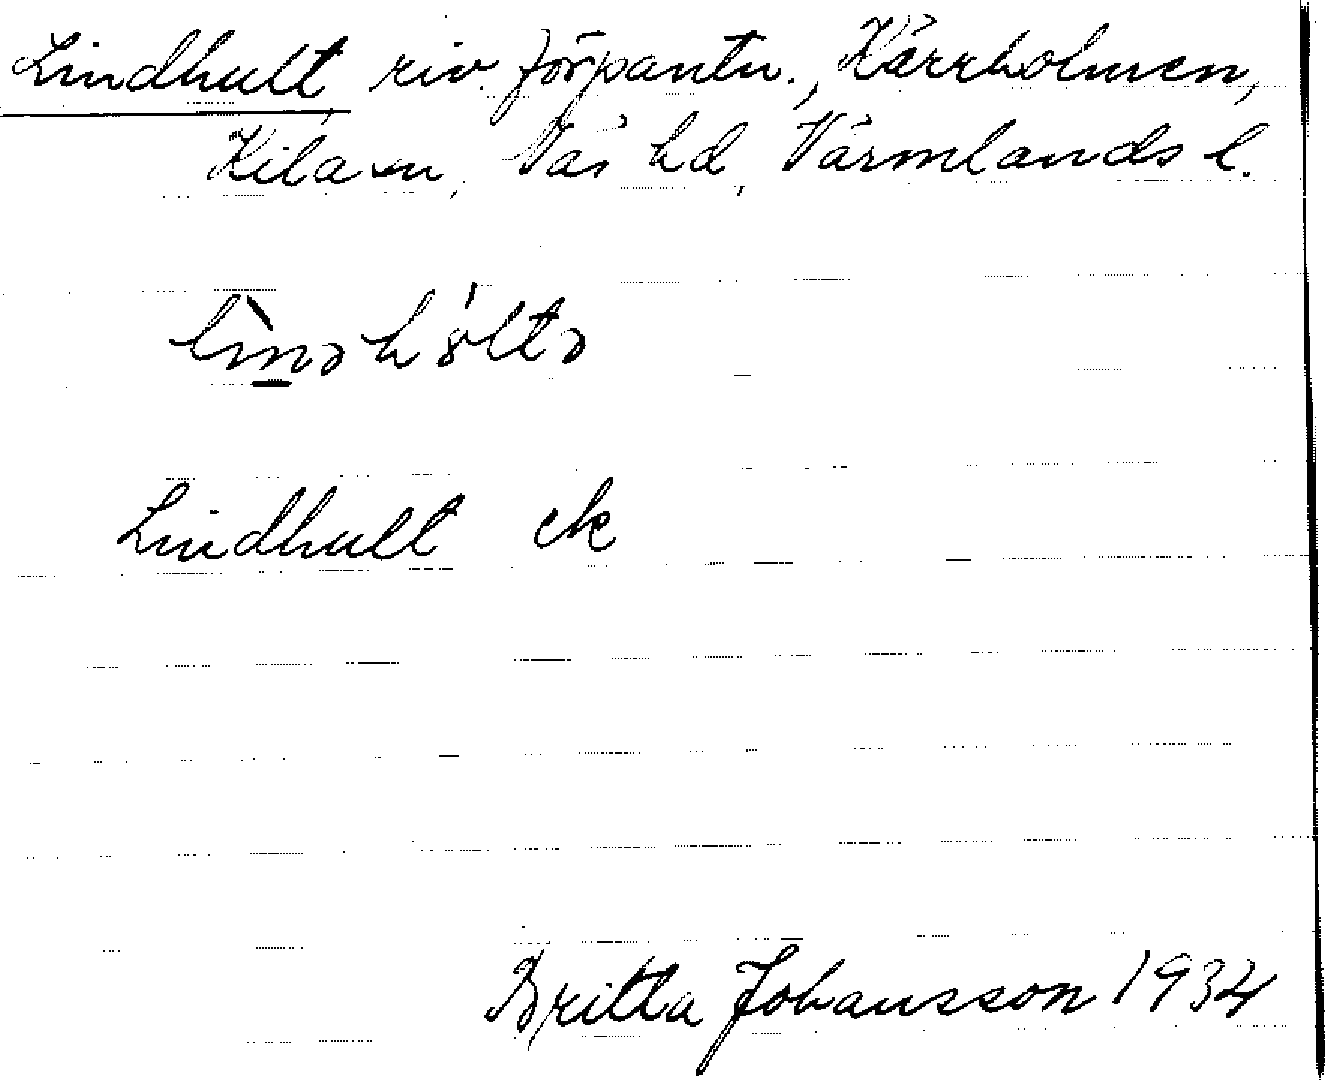 Lindhult, riv. förpantn., Kärrholmen,
Kila sn, Näs hd, Värmlands l.
Lindhult ek
Britta Johansson 1934